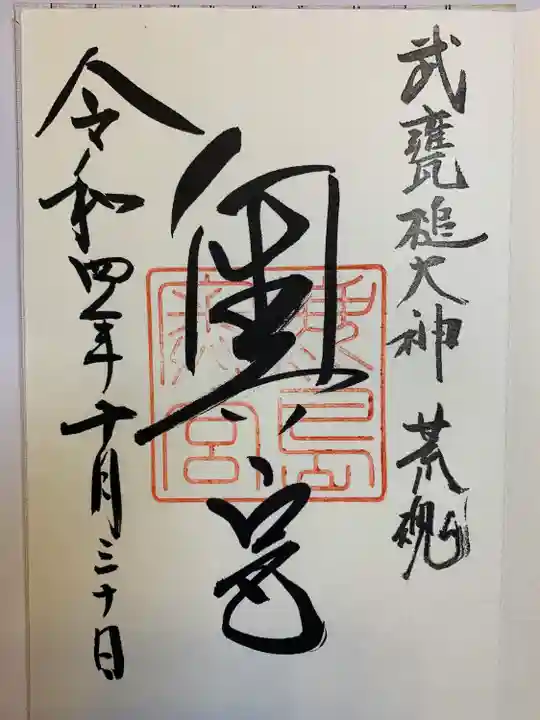 武甕槌大神 荒魂
奥宮
鹿島
奥宮
令和四年十月三十日